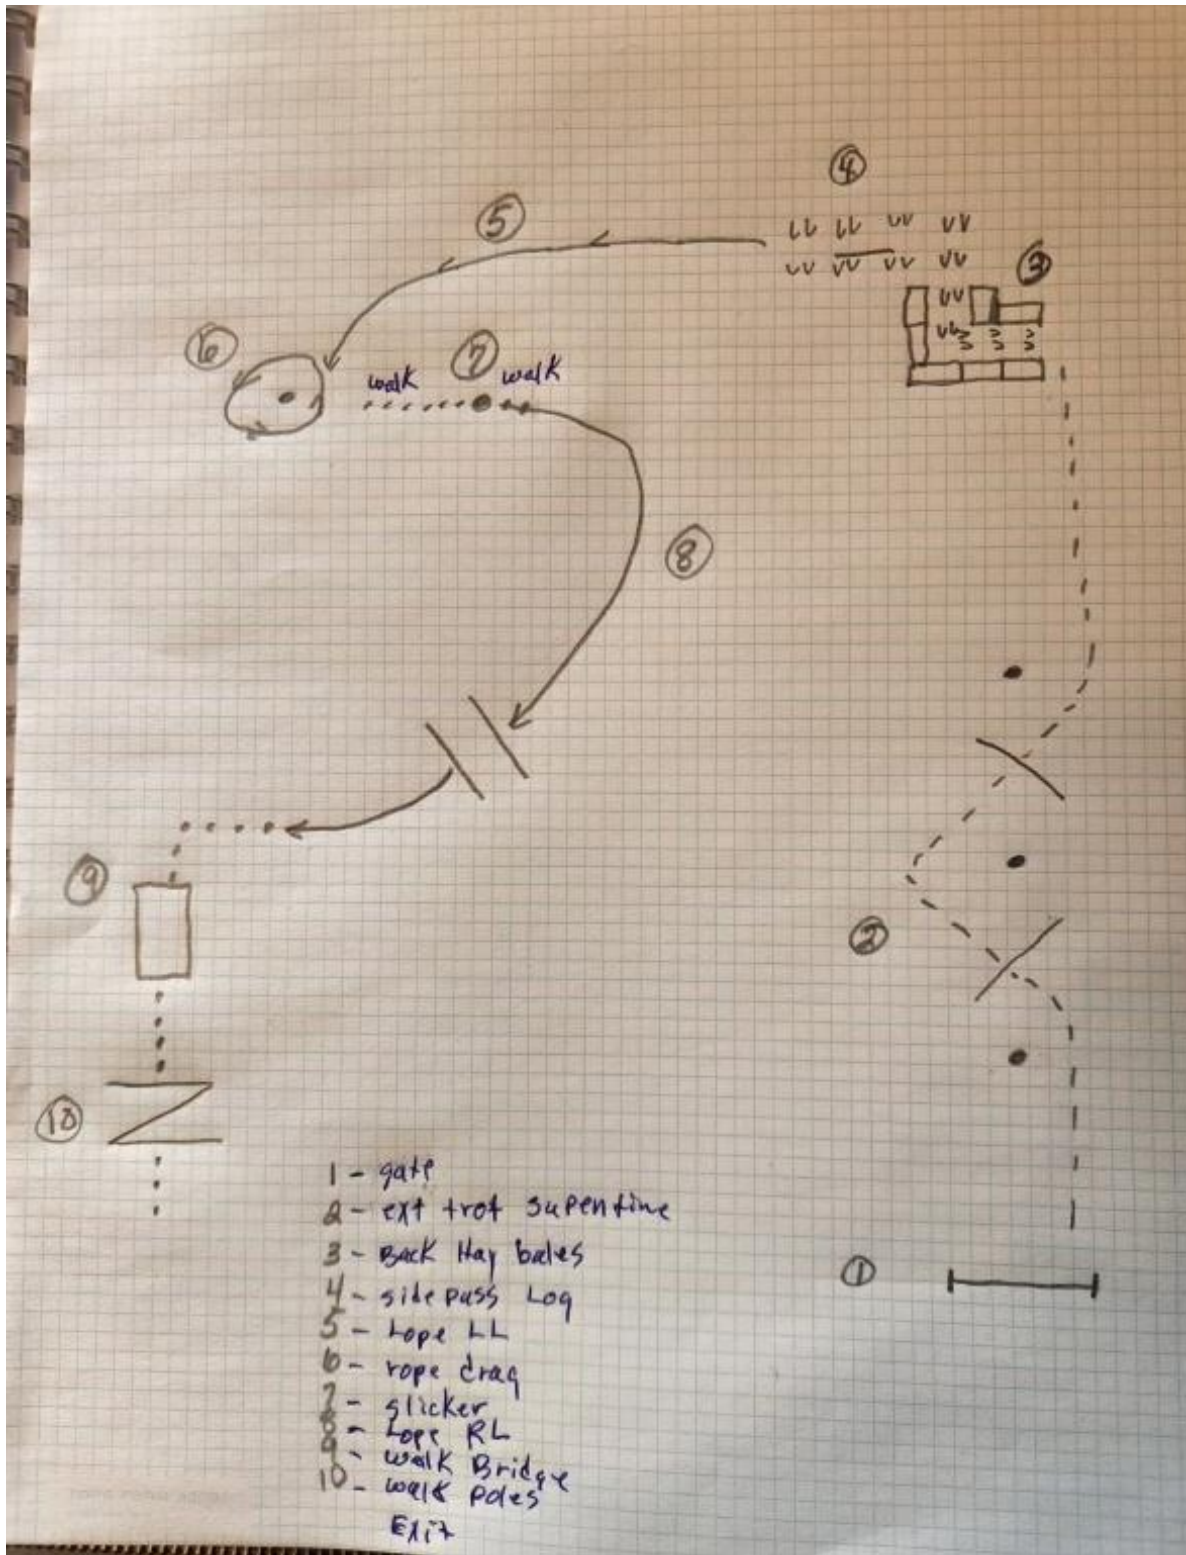 4
5
3
6
7
walk
walk
8
9
2
10
1
1 - gate
2 - ext trot supentine
3 - Back Hay bales
4 - side pass Log
5 - Lope LL
6 - rope drag
7 - slicker
8 - Lope RL
9 - walk Bridge
10 - walk poles
Exit